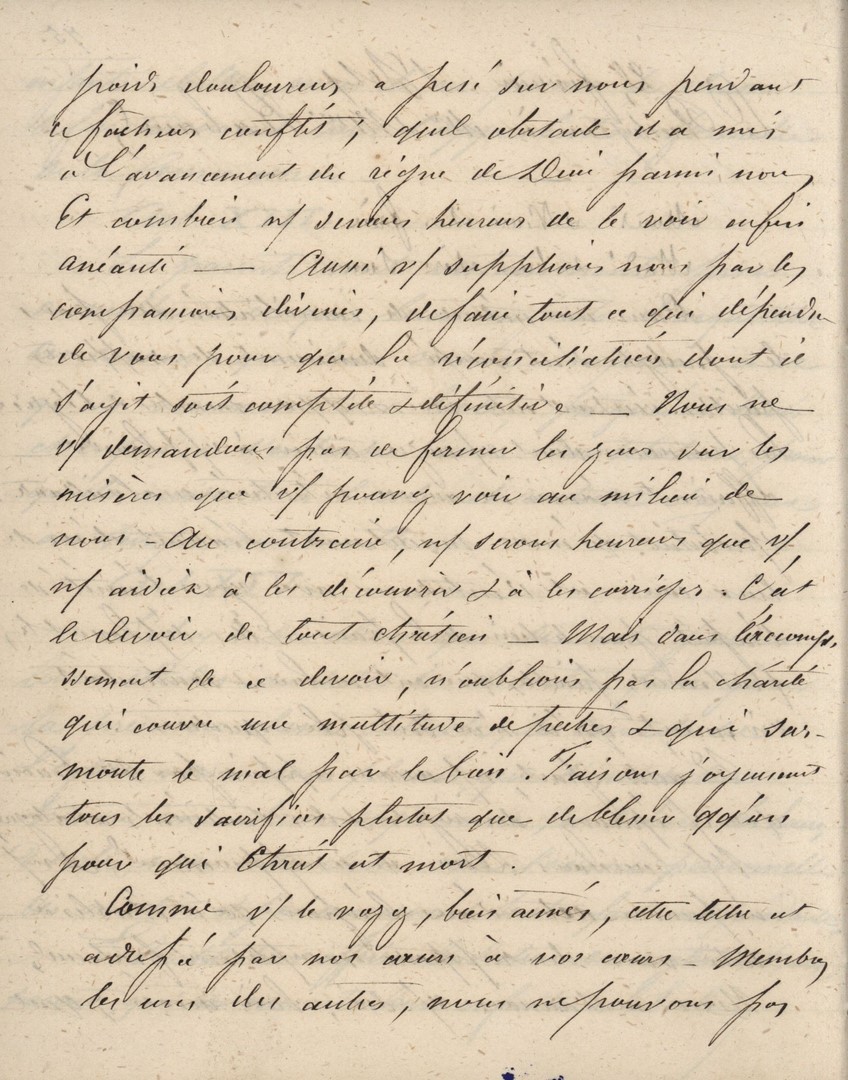 poids douloureux a pesé sur nous pendant
ce fâcheux conflit ; quel obstacle il a mis
à l'avancement du règne de Dieu parmi nous,
Et combien n/ serions heureux de le voir enfin
anéanti — Aussi v/ supplions nous par les
compassions divines, de faire tout ce qui dépendra
de vous pour que la réconciliation dont il
s'agit soit complète & définitive — Nous ne
v/ demandons pas de fermer les yeux sur les
misères que v/ pouvez voir au milieu de
nous - Au contraire, n/ serons heureux que v/
n/ aidiez à les découvrir & à les corriger. C'est
le devoir de tout chrétien — Mais dans l'accomplis-
sement de ce devoir, n'oublions pas la charité
qui couvre une multitude de péchés & qui sur-
monte le mal par le bien. Faisons joyeusement
tous les sacrifices plutot que de blesser qq'un
pour qui Christ est mort.
Comme v/ le voyez, bien aimés, cette lettre est
adressée par nos cœurs à vos cœurs - Membres
les uns des autres, nous ne pouvons pas